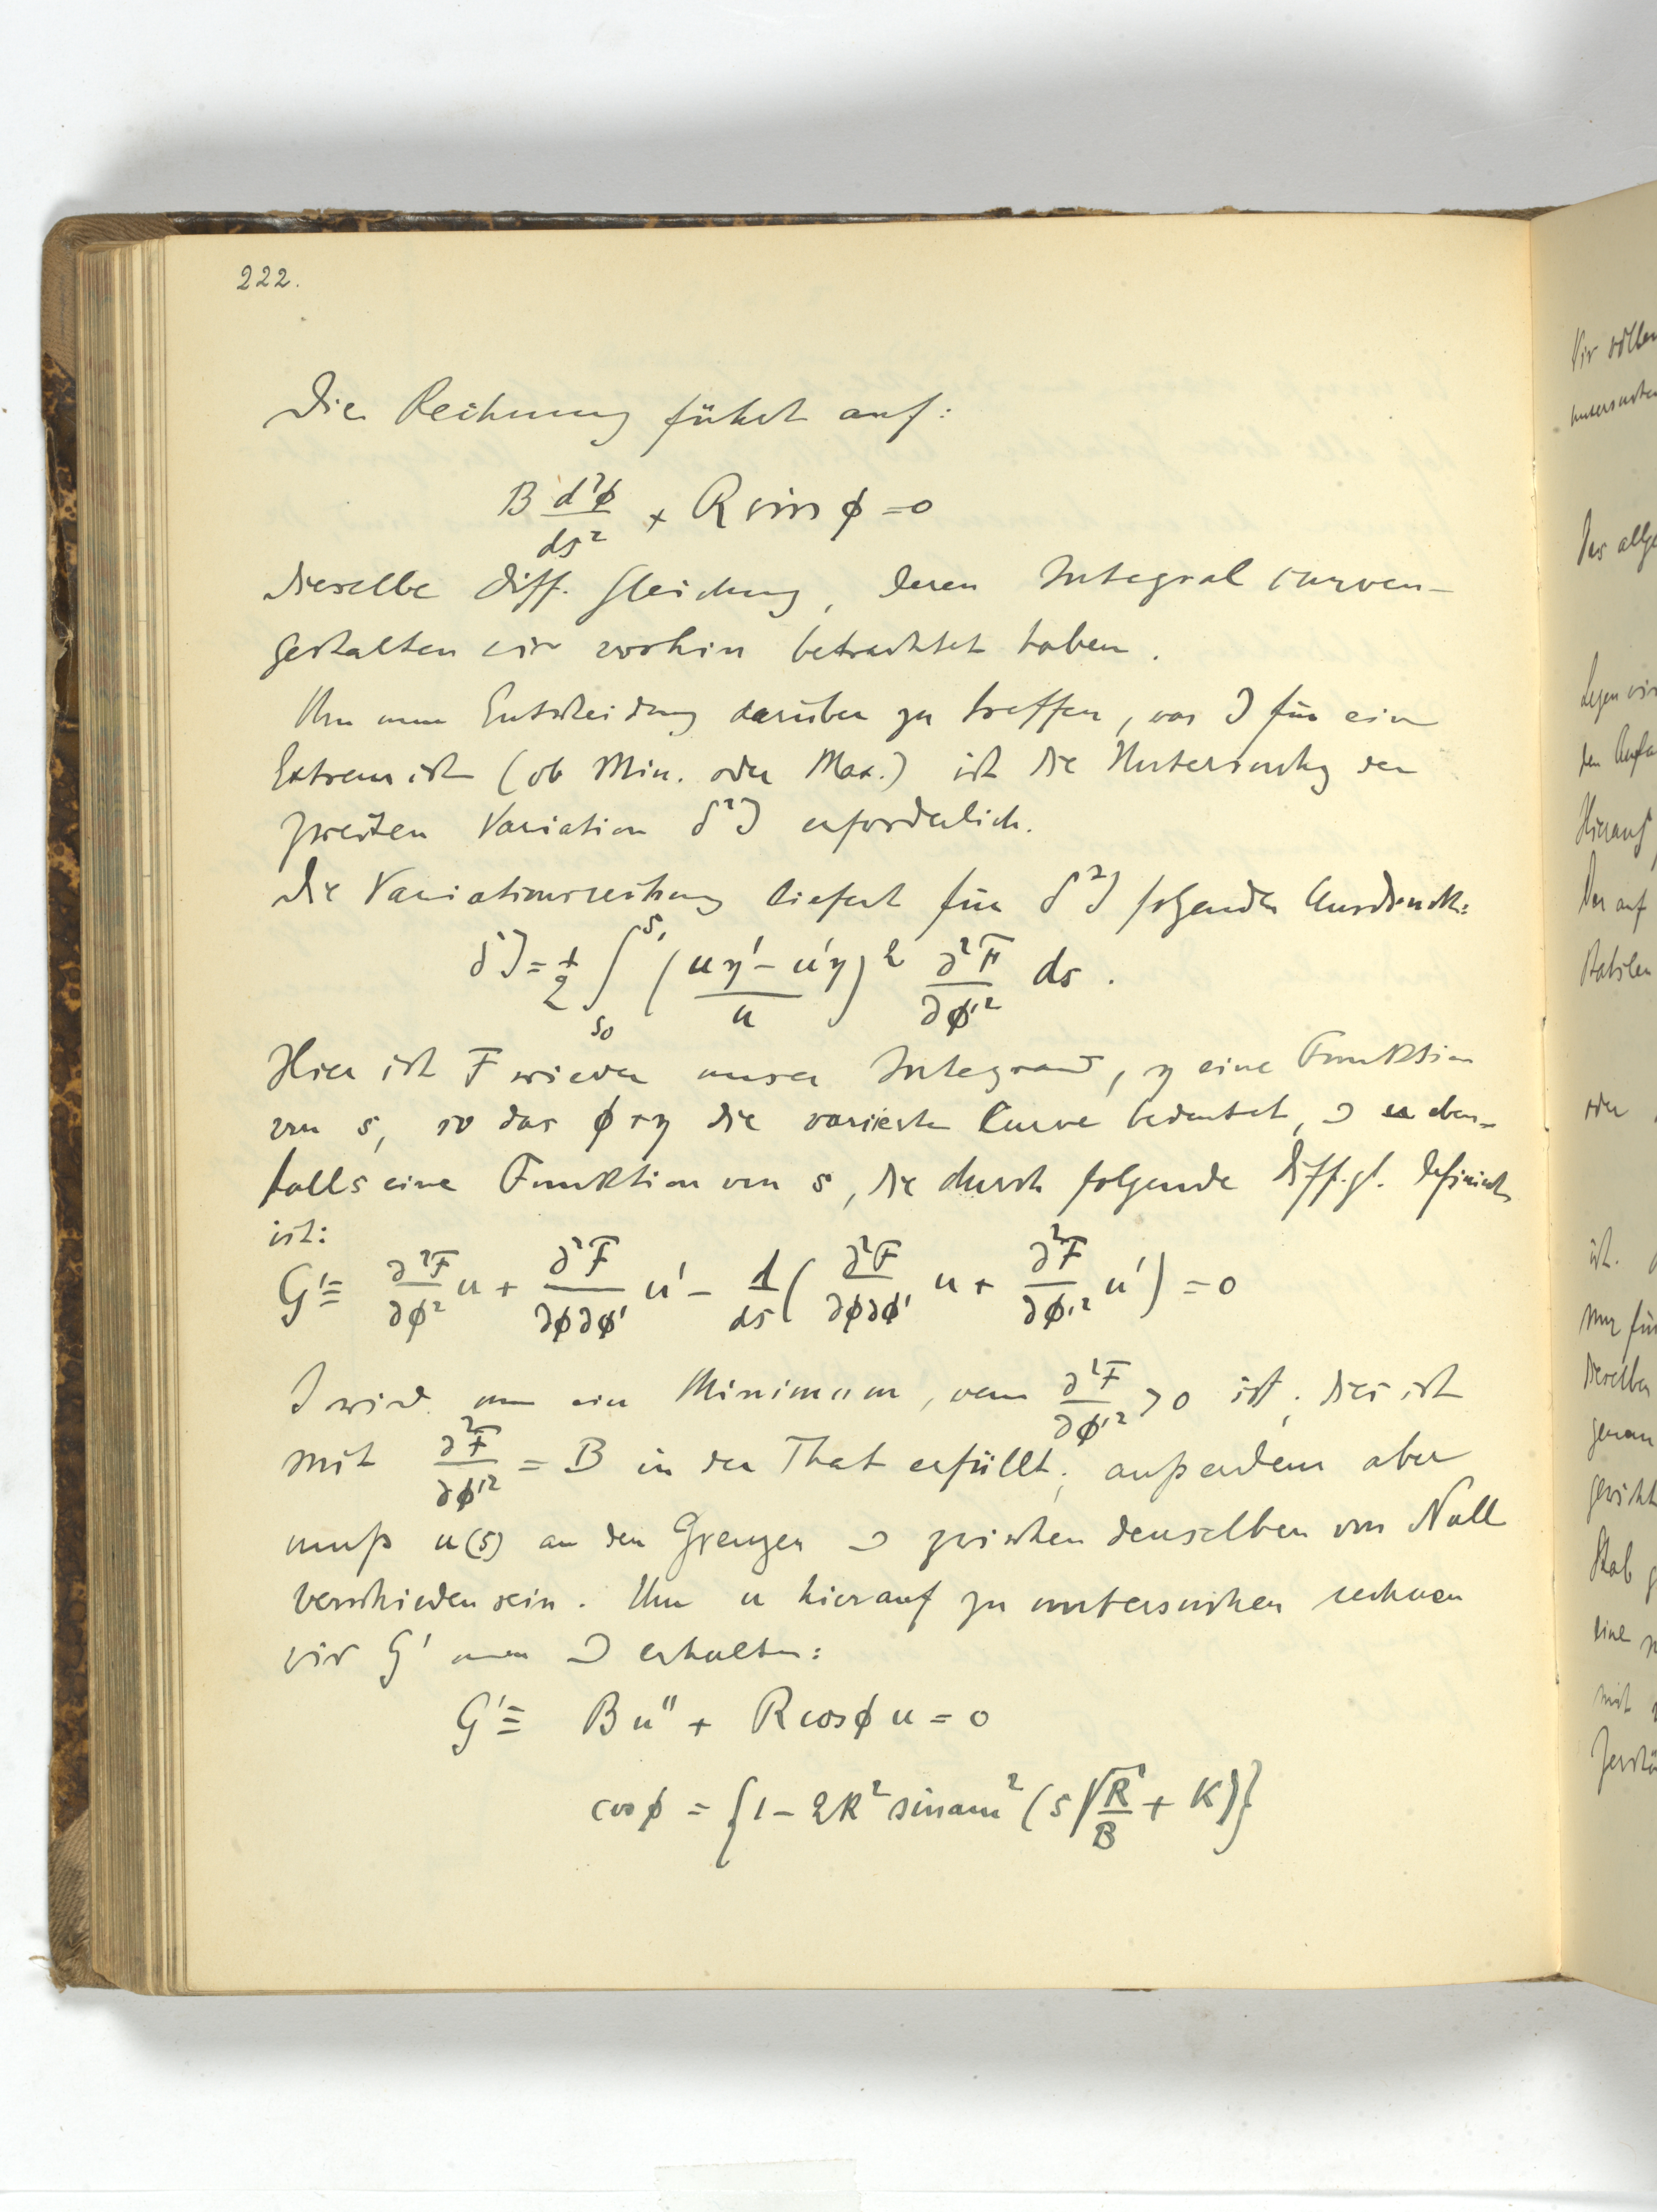 222.
Die Rechnung führt auf:
B d²ϕ/ds² + R sin ϕ = 0
dieselbe Diff. Gleichung, deren Integralcurven-
gestalten wir vorhin betrachtet haben.
Um nun Entscheidung darüber zu treffen, was J für ein
Extrem ist (ob Min. oder Max.) ist die Untersuchg der
zweiten Variation δ²J erforderlich.
Die Variationsrechnung liefert für δ²J folgenden Ausdruck:
δ²J = 1/2 ∫_{s₀}^{s₁} ((uη' − u'η)/u)² ∂²F/∂ϕ'² ds.
Hier ist F wieder unser Integrand, η eine Funktion
von s, so das ϕ+η die variierte Curve bedeutet, u eben-
falls eine Funktion von s, die durch folgende Diff.gl. definiert
ist:
G' ≡ ∂²F/∂ϕ² u + ∂²F/∂ϕ∂ϕ' u' − d/ds (∂²F/∂ϕ∂ϕ' u + ∂²F/∂ϕ'² u') = 0
J wird nun ein Minimum, wenn ∂²F/∂ϕ'² > 0 ist; dies ist
mit ∂²F/∂ϕ'² = B in der That erfüllt; außerdem aber
muß u(s) an den Grenzen zwischen denselben von Null
verschieden sein. Um u hierauf zu untersuchen rechnen
wir G' aus erhalten:
G' ≡ Bu'' + R cos ϕ u = 0
cos ϕ = {1 − 2k² sinam² (s √(R/B) + K)}